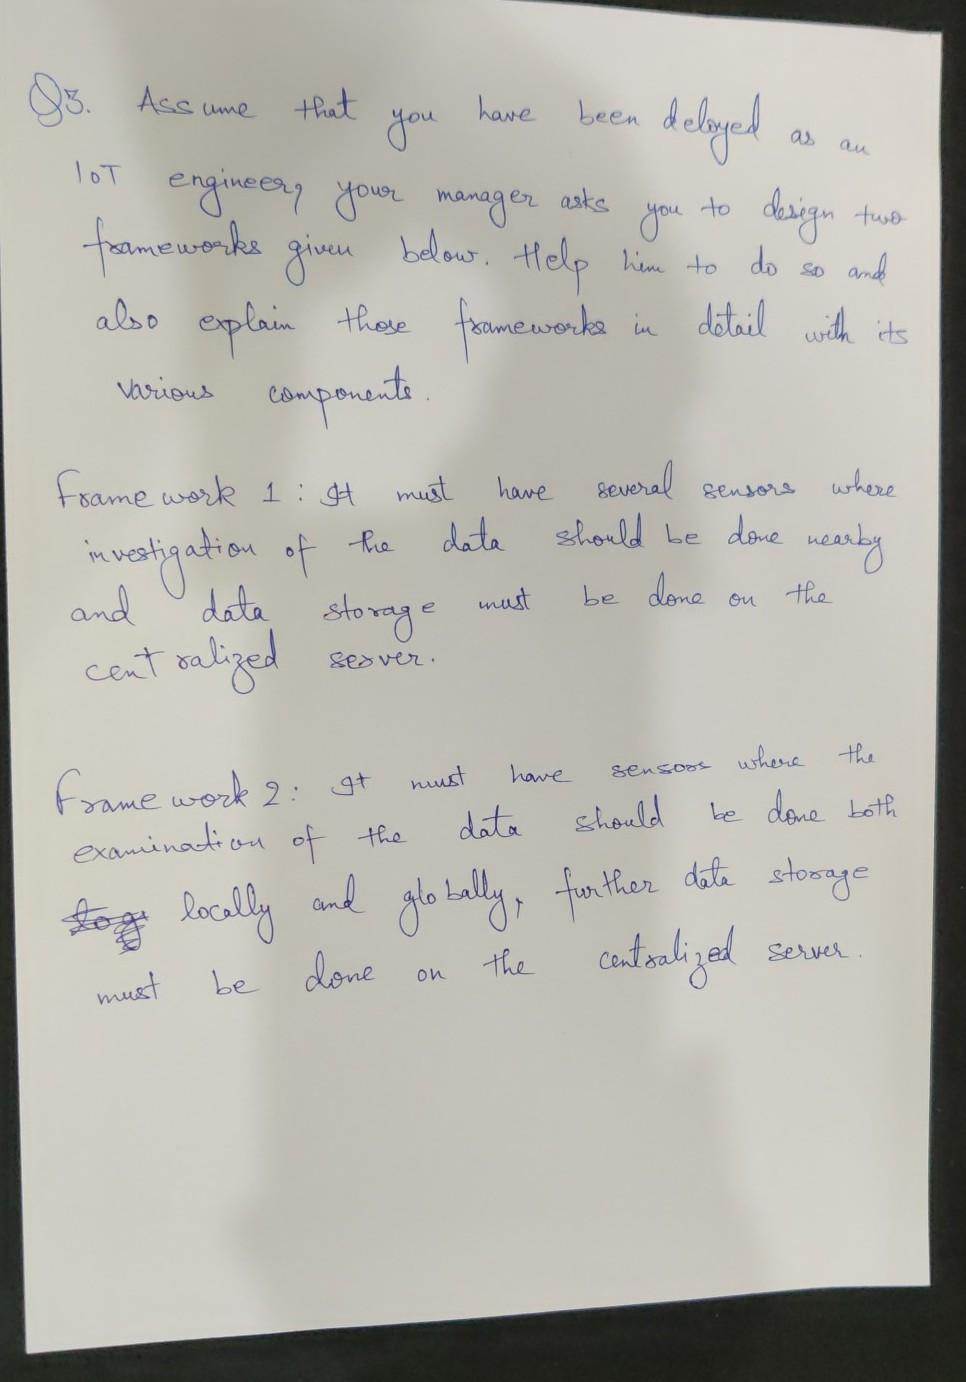 Q3. Assume that you have been deloyed as an
IoT engineer, your manager asks you to design two
frameworks given below. Help him to do so and
also explain those frameworks in detail with its
various components.
Framework 1 : It must have several sensors where
investigation of the data should be done nearby
and data storage must be done on the
centralized server.
Framework 2 : It must have sensors where the
examination of the data should be done both
locally and globally, further data storage
must be done on the centralized server.